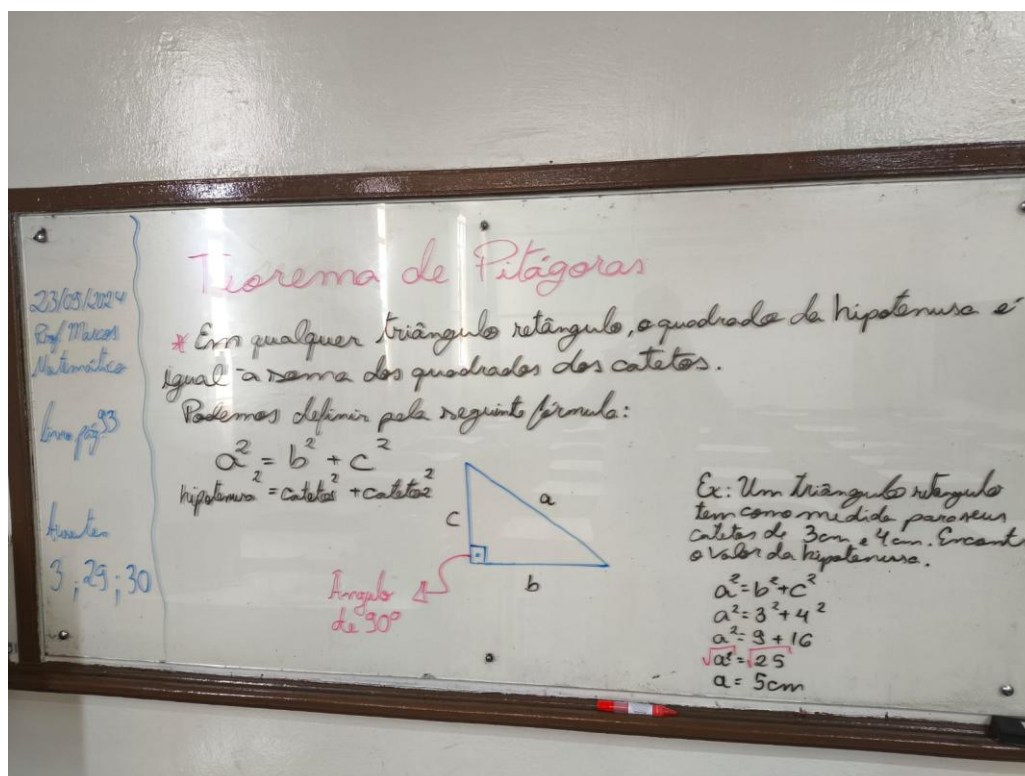 23/09/2024
Prof Marcos
Matemática
Livro pág 93
Ausentes
3 ; 29 ; 30
Teorema de Pitágoras
* Em qualquer triângulo retângulo, o quadrado da hipotenusa é
igual a soma dos quadrados dos catetos.
Podemos definir pela seguinte fórmula:
a² = b² + c²
hipotenusa² = cateto1² + cateto2²
c
a
b
Ângulo
de 90º
Ex: Um triângulo retangulo
tem como medida para seus
catetos de 3cm e 4cm. Encont
o valor da hipotenusa.
a² = b² + c²
a² = 3² + 4²
a² = 9 + 16
√a² = √25
a = 5cm